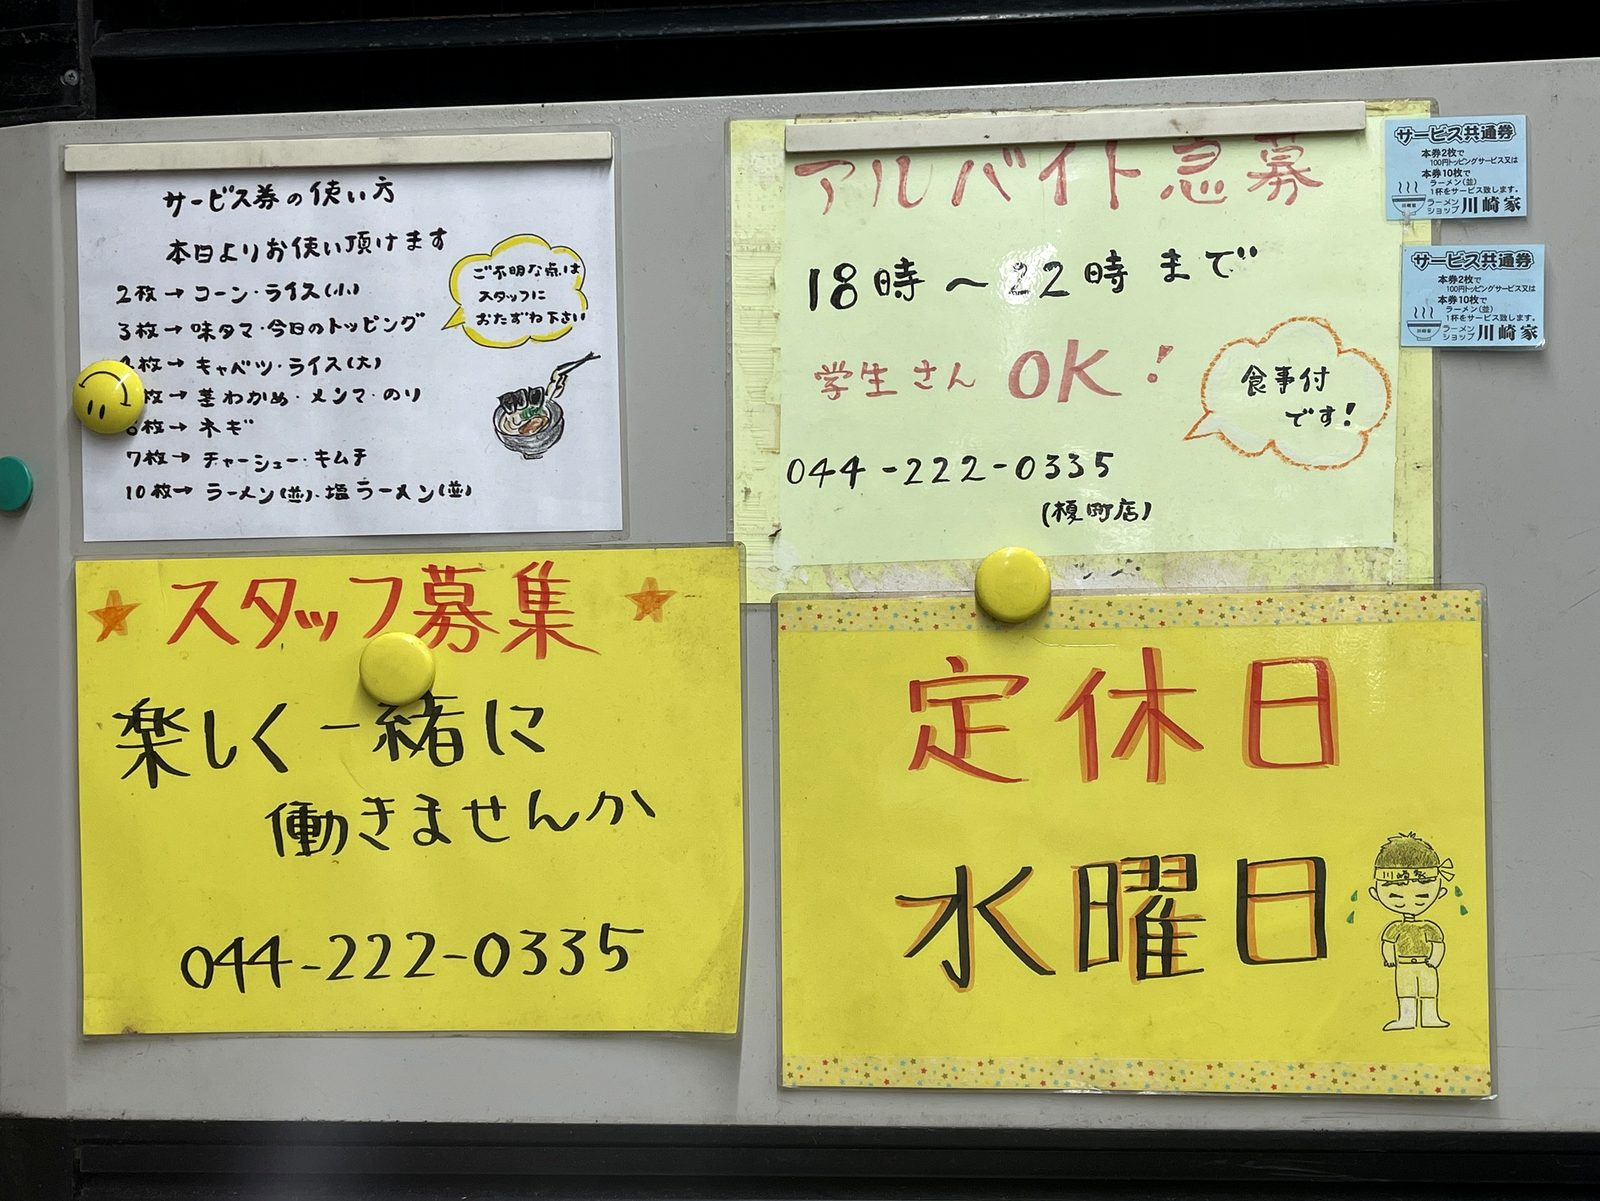 サービス券の使い方
本日よりお使い頂けます
2枚→コーン・ライス(小)
3枚→味タマ・今日のトッピング
枚→キャベツ・ライス(大)
枚→茎わかめ・メンマ・のり
枚→ネギ
7枚→チャーシュー・キムチ
10枚→ラーメン(並)・塩ラーメン(並)
ご不明な点は
スタッフに
おたずね下さい
アルバイト急募
18時〜22時まで
学生さんOK!
食事付
です!
044-222-0335
(榎町店)
サービス共通券
本券2枚で
100円トッピングサービス又は
本券10枚で
ラーメン(並)
1杯をサービス致します。
川崎家
ラーメン
ショップ 川崎家
サービス共通券
本券2枚で
100円トッピングサービス又は
本券10枚で
ラーメン(並)
1杯をサービス致します。
川崎家
ラーメン
ショップ 川崎家
スタッフ募集
楽しく一緒に
働きませんか
044-222-0335
定休日
水曜日
川崎家